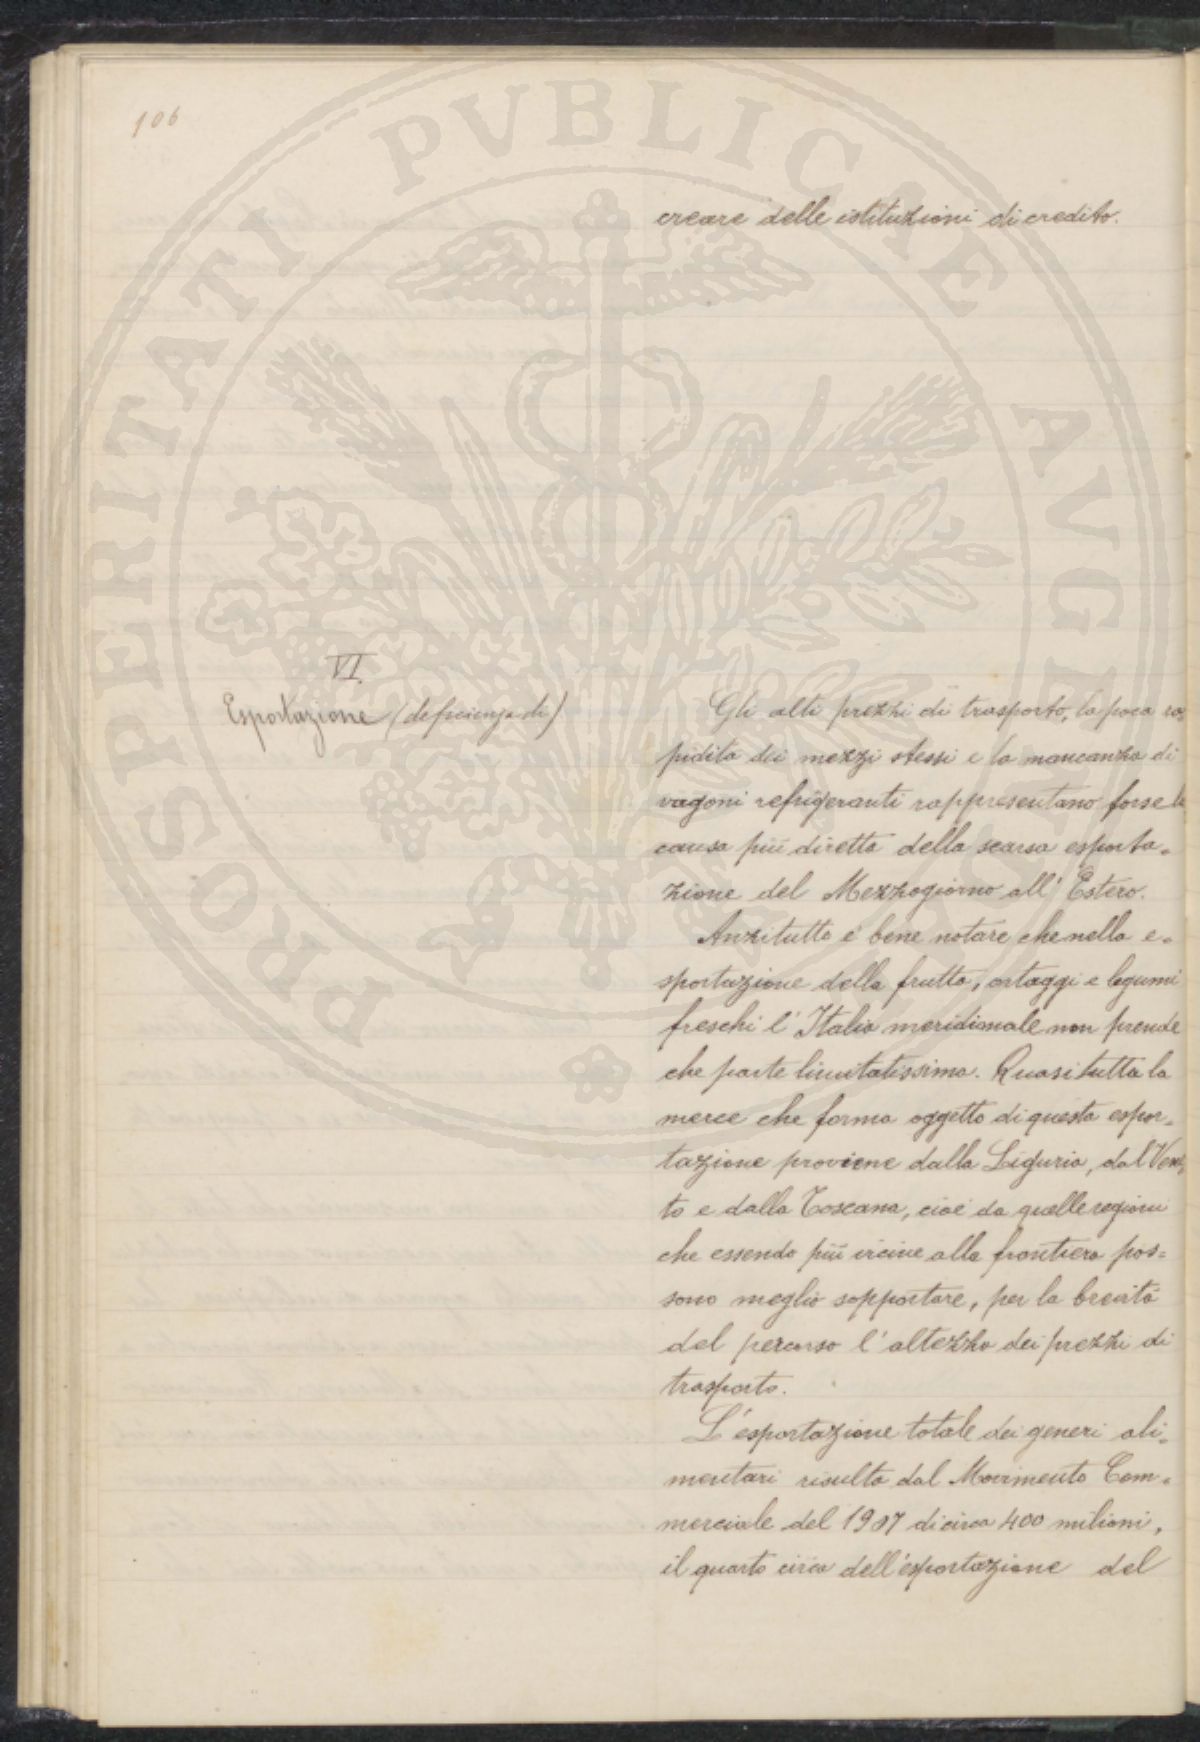 106
creare delle istituzioni di credito.
VI.
Esportazione (deficienza di)
Gli alti prezzi di trasporto, la poca ra-
pidità dei mezzi stessi e la mancanza di
vagoni refrigeranti rappresentano forse la
causa più diretta della scarsa esporta-
zione del Mezzogiorno all'Estero.
Anzitutto è bene notare che nella e-
sportazione della frutta, ortaggi e legumi
freschi l'Italia meridionale non prende
che parte limitatissima. Quasi tutta la
merce che forma oggetto di questa espor-
tazione proviene dalla Liguria, dal Vene-
to e dalla Toscana, cioè da quelle regioni
che essendo più vicine alla frontiera pos=
sono meglio sopportare, per la brevità
del percorso l'altezza dei prezzi di
trasporto.
L'esportazione totale dei generi ali-
mentari risulta dal Movimento Com-
merciale del 1907 di circa 400 milioni,
il quarto circa dell'esportazione del
PROSPERITATI PVBLICAE AVGENDAE